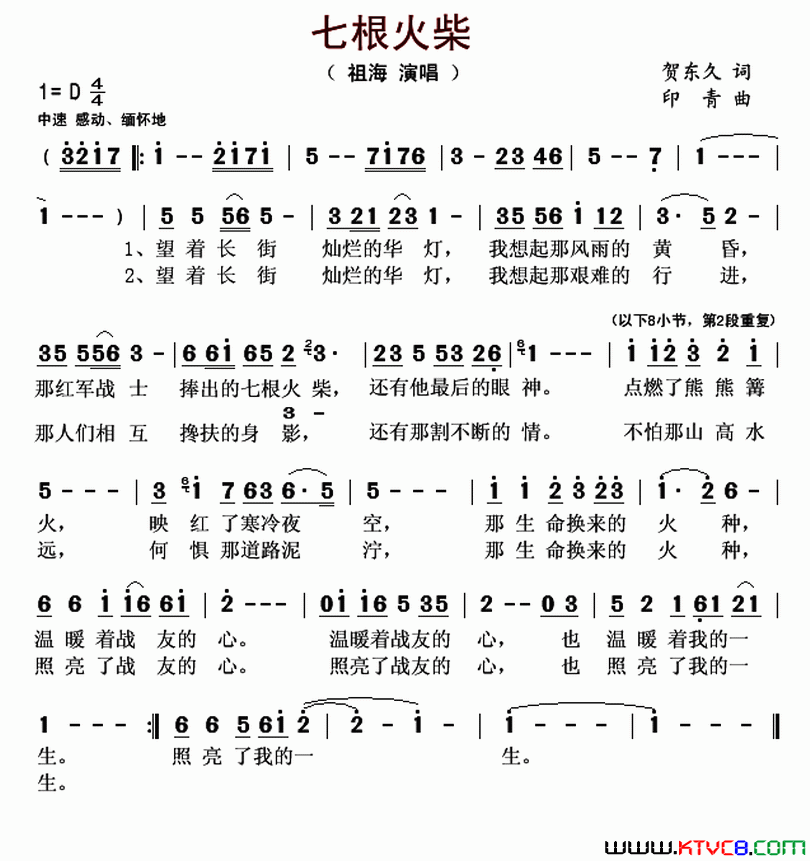 七根火柴
（ 祖海 演唱 ）
贺东久 词
1= D 4/4
印 青 曲
中速 感动、缅怀地
( 3217 ‖: 1 - - 2171 | 5 - - 7176 | 3 - 23 46 | 5 - - 7 | 1 - - - |
1 - - - ) | 5 5 56 5 - | 3 21 23 1 - | 35 56 1 12 | 3· 5 2 - |
1、望 着 长 街 灿烂的华 灯， 我想起那风雨的 黄 昏，
2、望 着 长 街 灿烂的华 灯， 我想起那艰难的 行 进，
（以下8小节，第2段重复）
35 556 3 - | 6 61 65 2 2 3· | 23 5 53 26 | 6 1 - - - | 1 12 3 2 1 |
那红军战 士 捧出的七根火 柴， 还有他最后的眼 神。 点燃了熊 熊 篝
3 -
那人们相 互 搀扶的身 影， 还有那割不断的 情。 不怕那山 高 水
5 - - - | 3 6 1 7 63 6· 5 | 5 - - - | 1 1 2 3 23 | 1· 2 6 - |
火， 映 红 了寒冷夜 空， 那 生 命换来的 火 种，
远， 何 惧 那道路泥 泞， 那 生 命换来的 火 种，
6 6 1 16 61 | 2 - - - | 01 16 5 35 | 2 - - 0 3 | 5 2 1 61 21 |
温 暖 着战 友的 心。 温暖着战友的 心， 也 温 暖 着我的一
照 亮 了战 友的 心。 照亮了战友的 心， 也 照 亮 了我的一
1 - - - :‖ 6 6 5 61 2 - | 2 - 1 - | 1 - - - | 1 - - - ‖
生。 照 亮 了我的一 生。
生。
www.KTVC8.COM